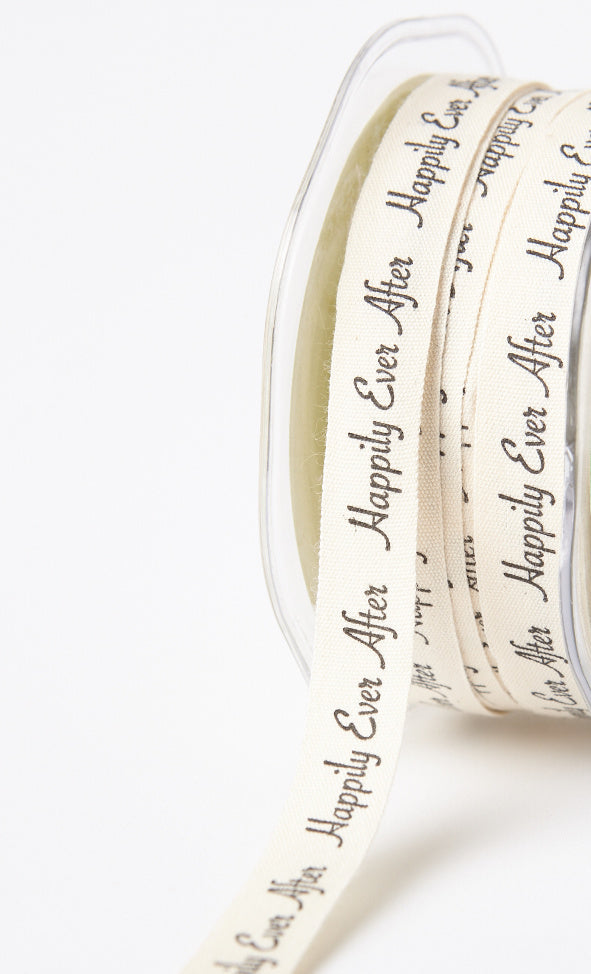 Happily Ever After
Happily Ever After
Happily Ever After
Ever After
Happily
Happily Ever
Happily Ever After
Ever After
After
After